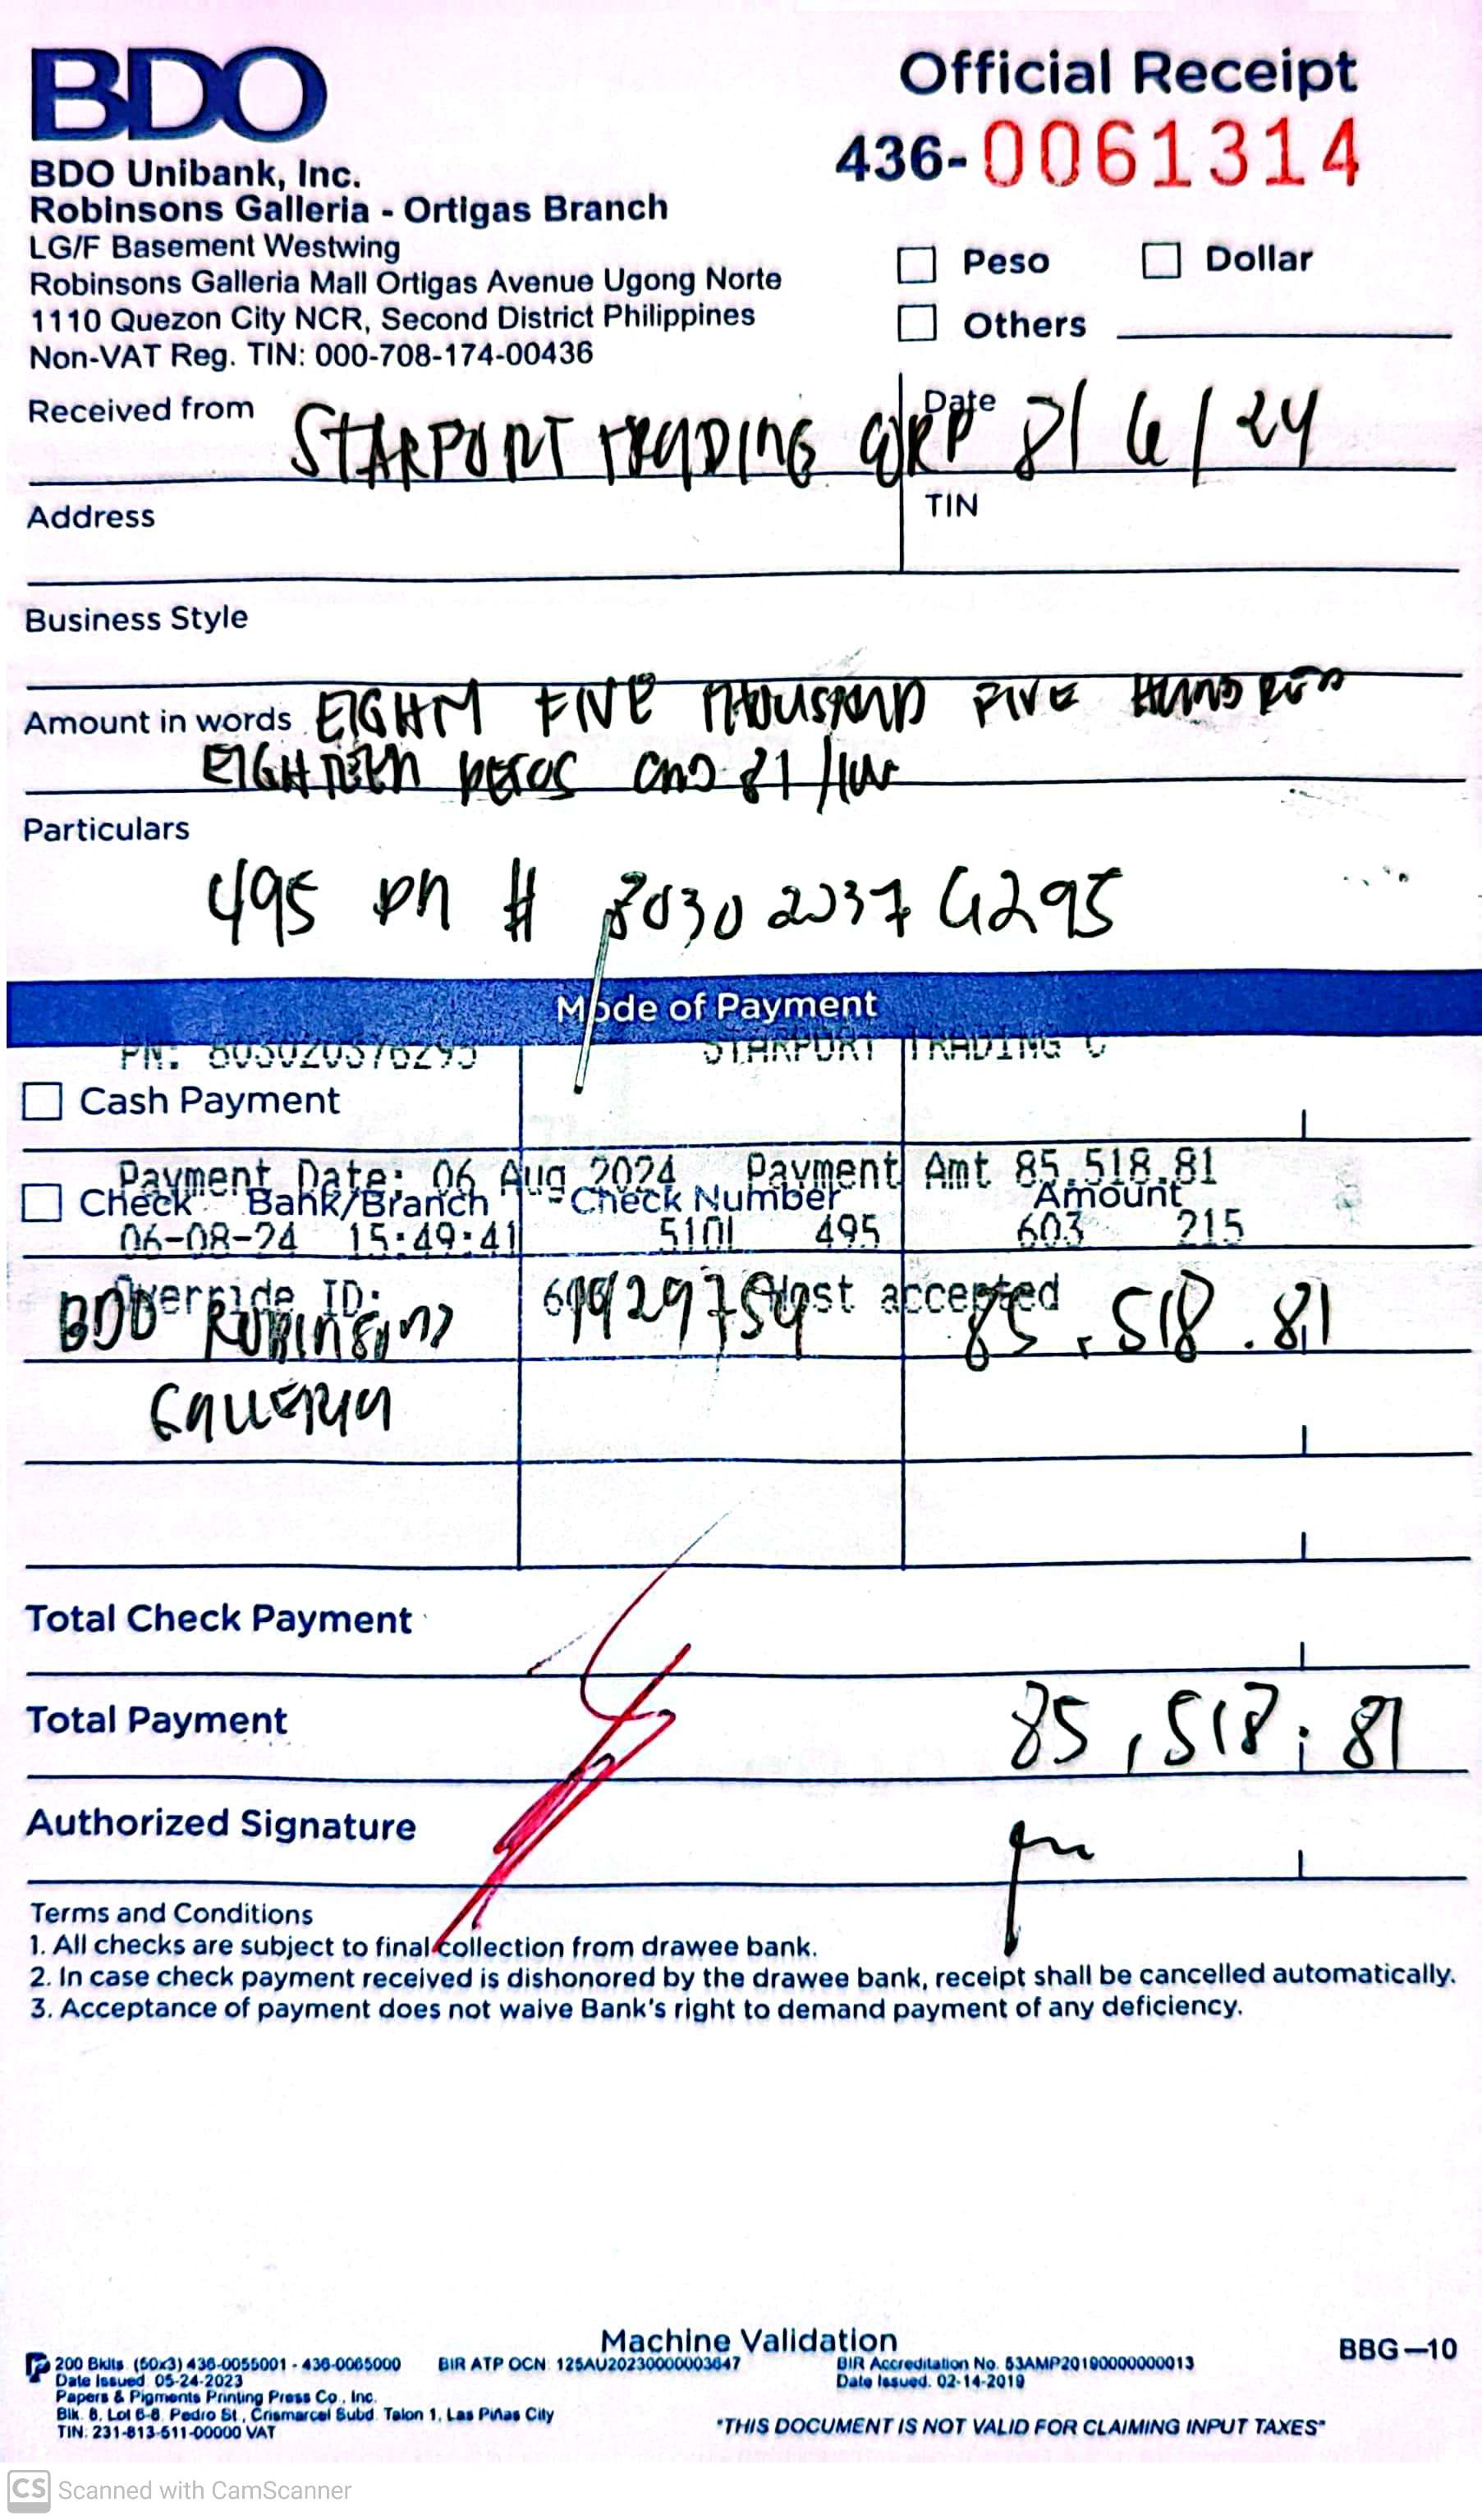 BDO
Official Receipt
436-0061314
BDO Unibank, Inc.
Robinsons Galleria - Ortigas Branch
LG/F Basement Westwing
Robinsons Galleria Mall Ortigas Avenue Ugong Norte
1110 Quezon City NCR, Second District Philippines
Non-VAT Reg. TIN: 000-708-174-00436
Peso Dollar
Others
Received from STARPORT TRADING CORP
Date 8/6/24
Address
TIN
Business Style
Amount in words EIGHTY FIVE THOUSAND FIVE HUNDRED
EIGHTEEN PESOS AND 81/100
Particulars
495 PN #
Mode of Payment
PN: STARPORT TRADING C
Cash Payment
Payment Date: 06 Aug 2024 Payment Amt 85,518.81
Check Bank/Branch Check Number Amount
06-08-24 15:49:41 5101 495 603 215
Override ID: Host accepted
BDO ROBINSONS 85,518.81
GALLERIA
Total Check Payment
Total Payment 85,518.81
Authorized Signature
Terms and Conditions
1. All checks are subject to final collection from drawee bank.
2. In case check payment received is dishonored by the drawee bank, receipt shall be cancelled automatically.
3. Acceptance of payment does not waive Bank's right to demand payment of any deficiency.
Machine Validation
BBG—10
200 Bklts. (50x3) 436-0055001 - 436-0065000
BIR ATP OCN: 125AU20230000003647
BIR Accreditation No. 53AMP20190000000013
Date Issued: 05-24-2023
Date Issued. 02-14-2019
Papers & Pigments Printing Press Co., Inc.
Blk. 8, Lot 6-8, Pedro St., Crismarcel Subd. Talon 1, Las Piñas City
TIN: 231-813-511-00000 VAT
"THIS DOCUMENT IS NOT VALID FOR CLAIMING INPUT TAXES"
CS Scanned with CamScanner